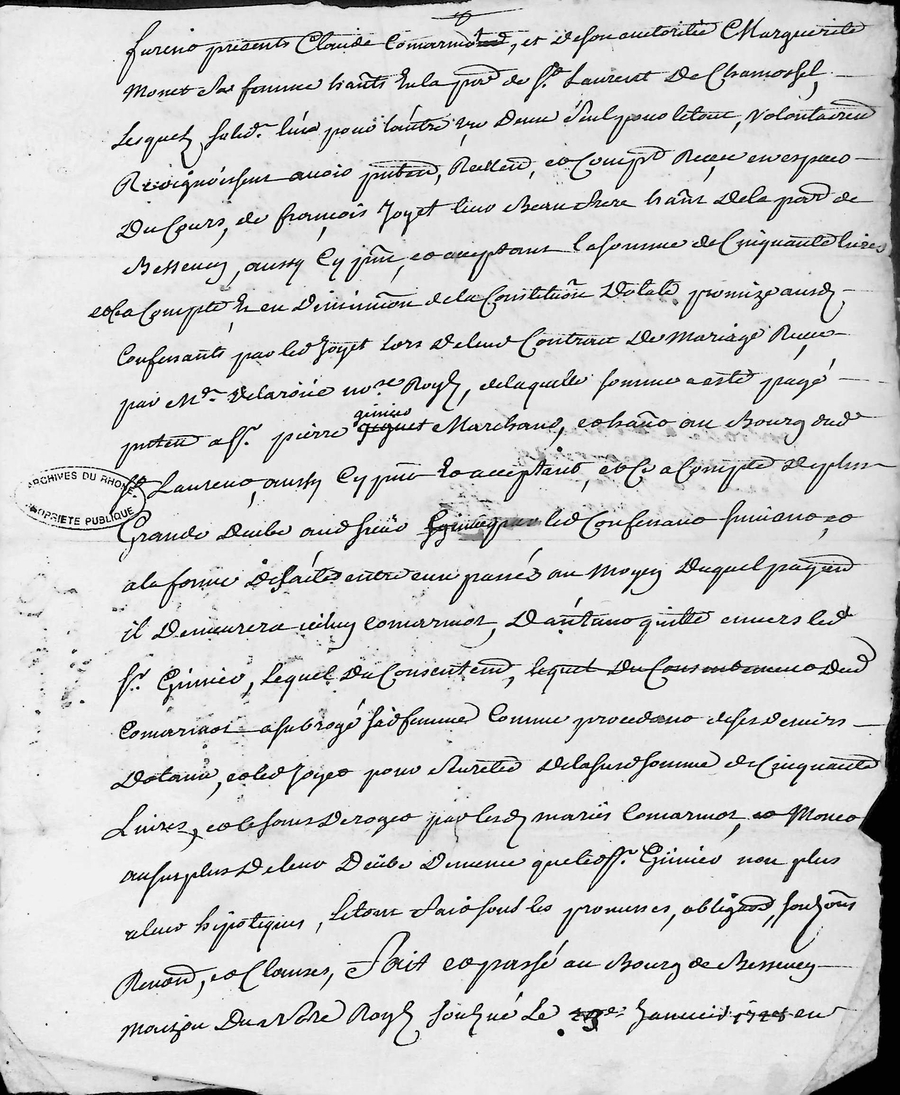 furent présents Claude Comarmond, et de son autorité Marguerite
Monet sa femme habts en la parr. de St. Laurent De Chamosset,
Lesquels solid.r l'un pour lautre un Deux seul pour le tout, volontairem
Recognoissent avoir pntem, Reellem, et Compt Receu en especes
Du Cours, de françois Joyet leur Beau frere habt De la parr. de
Bessenay, aussy Cy pnt, et acceptant la somme de Cinquante livres
et Ca Compte & en Diminuon de la Constituon Dotale promize ausd.
Confessants par led. Joyet Lors de leur Contrat De Mariage Receu
par Me. Delaroüe nore Royl, de laquelle somme a esté payé
pntem a Sr. pierre giguet Marchand, et habt au Bourg dud.
giniev
St Laurent, aussy Cy pnt & acceptant, et Ca Compte de plus
Grande Deube aud. sieur par led. Confessant suivant, et
a la forme De faite entre eux passés au Moyen Duquel payem
il Demeurera icelluy Comarmot, D'autant quitte envers led.
Sr. Giniev, Lequel Du Consentem, lequel Du Consentement Dud.
Comarmot a subrogé sad. femme Comme procedant de ses deniers
Dotaux, et led. Joyet pour seureté De la susd. somme de Cinquante
Livres, et le sans Deroger par lesd. mariés Comarmot, et Monet
au surplus de leur Deube De meme que led. Sr. Giniev non plus
a leur hipoteques, le tout Sait sous les promesses, obligaons, soubmons
Renon, et Clauses, Fait et passé au Bourg de Bessenay
maizon Du Nore Royl soubzné Le 23e. Janvier 1728 en
ARCHIVES DU RHONE
PROPRIETE PUBLIQUE